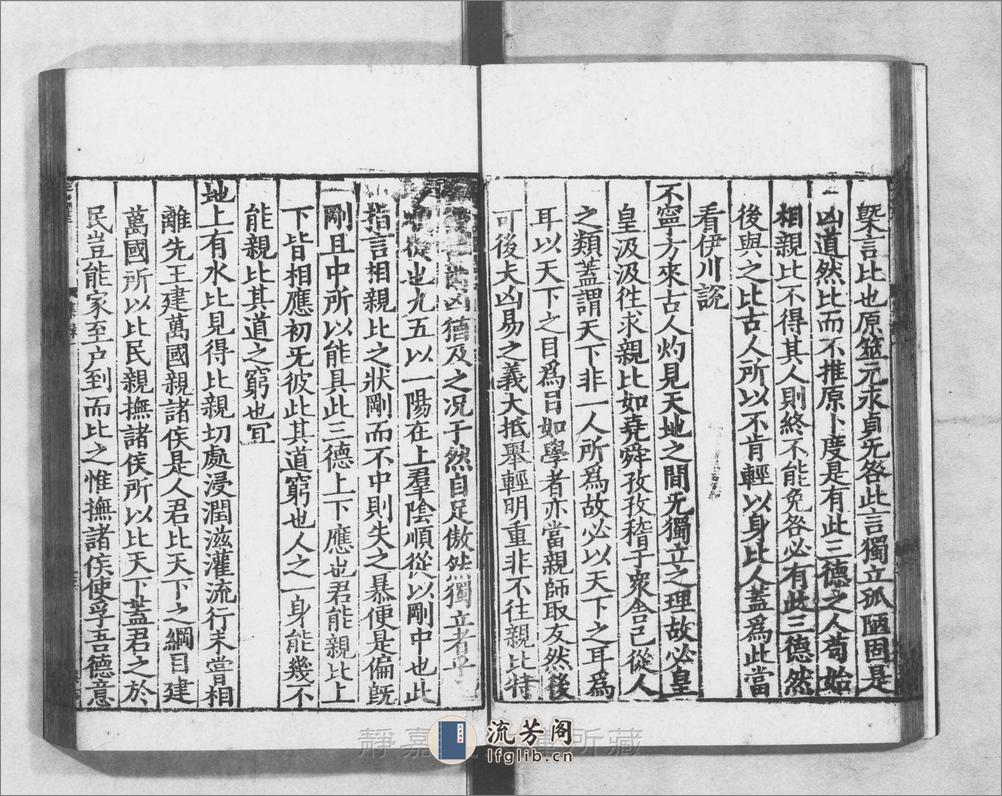 槩言比也原筮元永貞无咎此言獨立孤陋固是
凶道然比而不推原卜度是有此三德之人苟始
相親比不得其人則終不能免咎必有此三德然
後與之比古人所以不肯輕以身比人蓋爲此當
看伊川説
不寧方來古人灼見天地之間无獨立之理故必皇
皇汲汲徃求親比如堯舜孜孜稽于衆舎己從人
之類蓋謂天下非一人所爲故必以天下之耳爲
耳以天下之目爲目如學者亦當親師取友然後
可後夫凶易之義大抵舉輕明重非不往親比特
凶猶及之况于然自足傲然獨立者乎
從也九五以一陽在上羣隂順從以剛中也此
指言相親比之狀剛而不中則失之暴便是偏旣
剛且中所以能具此三德上下應也君能親比上
下皆相應初无彼此其道窮也人之一身能幾不
能親比其道之窮也冝
地上有水比見得比親切處浸潤滋灌流行未甞相
離先王建萬國親諸侯是人君比天下之綱目建
萬國所以比民親撫諸侯所以比天下蓋君之於
民豈能家至户到而比之惟撫諸侯使孚吾德意
静嘉 所藏
流芳阁
lfglib.cn